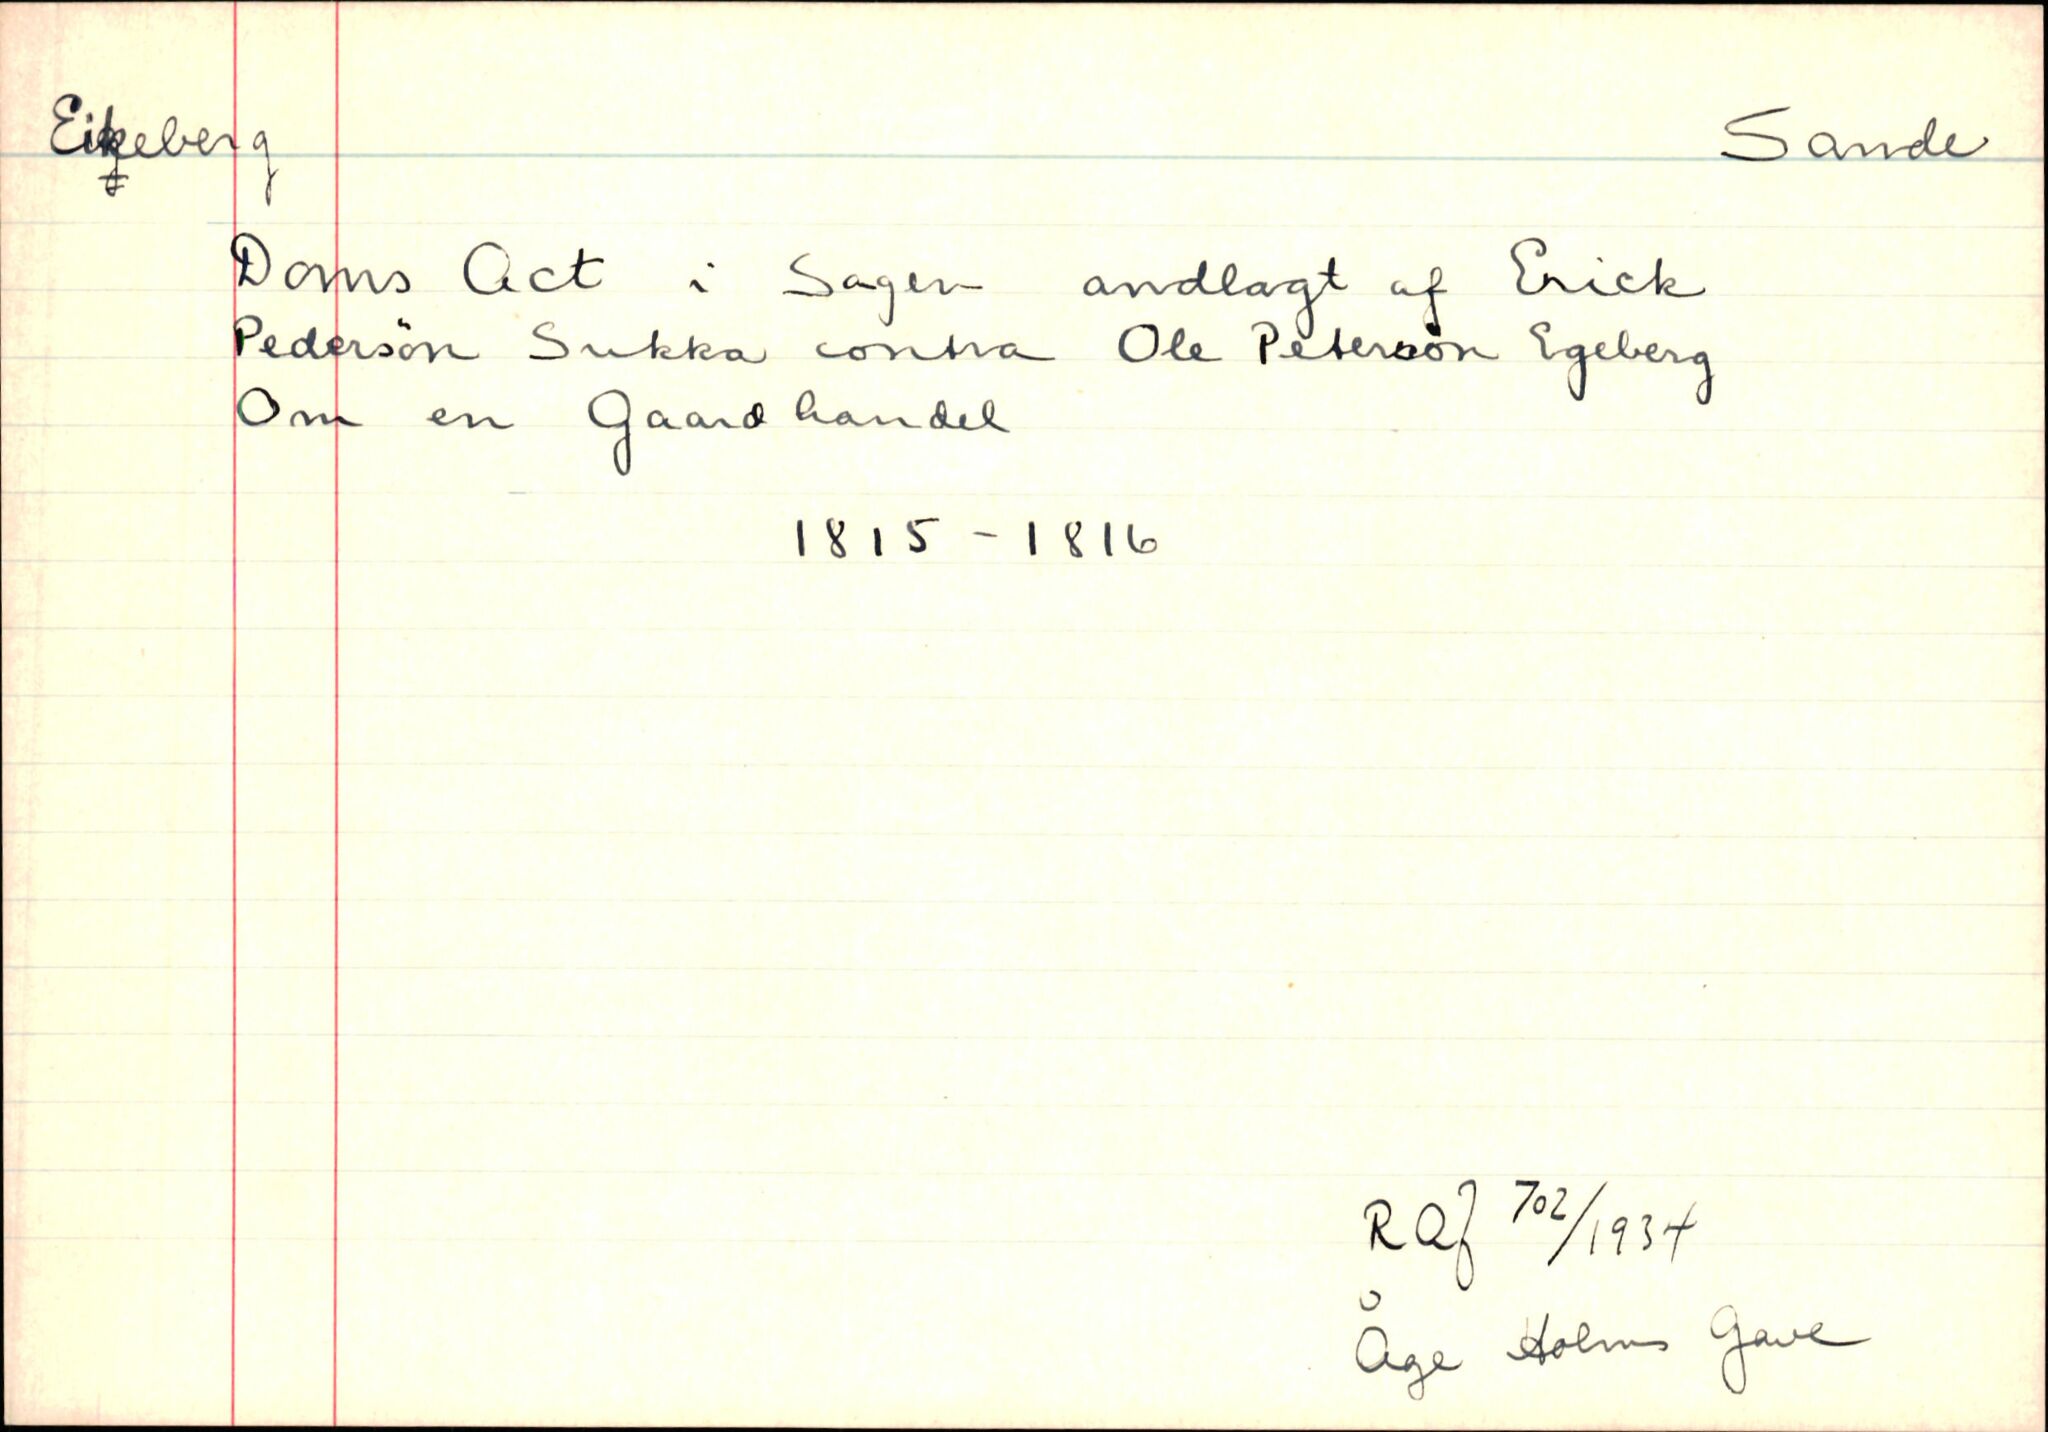 Eikeberg Sande
Doms Act i Sagen andlagt af Erick
Pedersön Sukka contra Ole Petersön Egeberg
Om en Gaardhandel
1815-1816
RAJ 702/1934
Åge Holms Gave